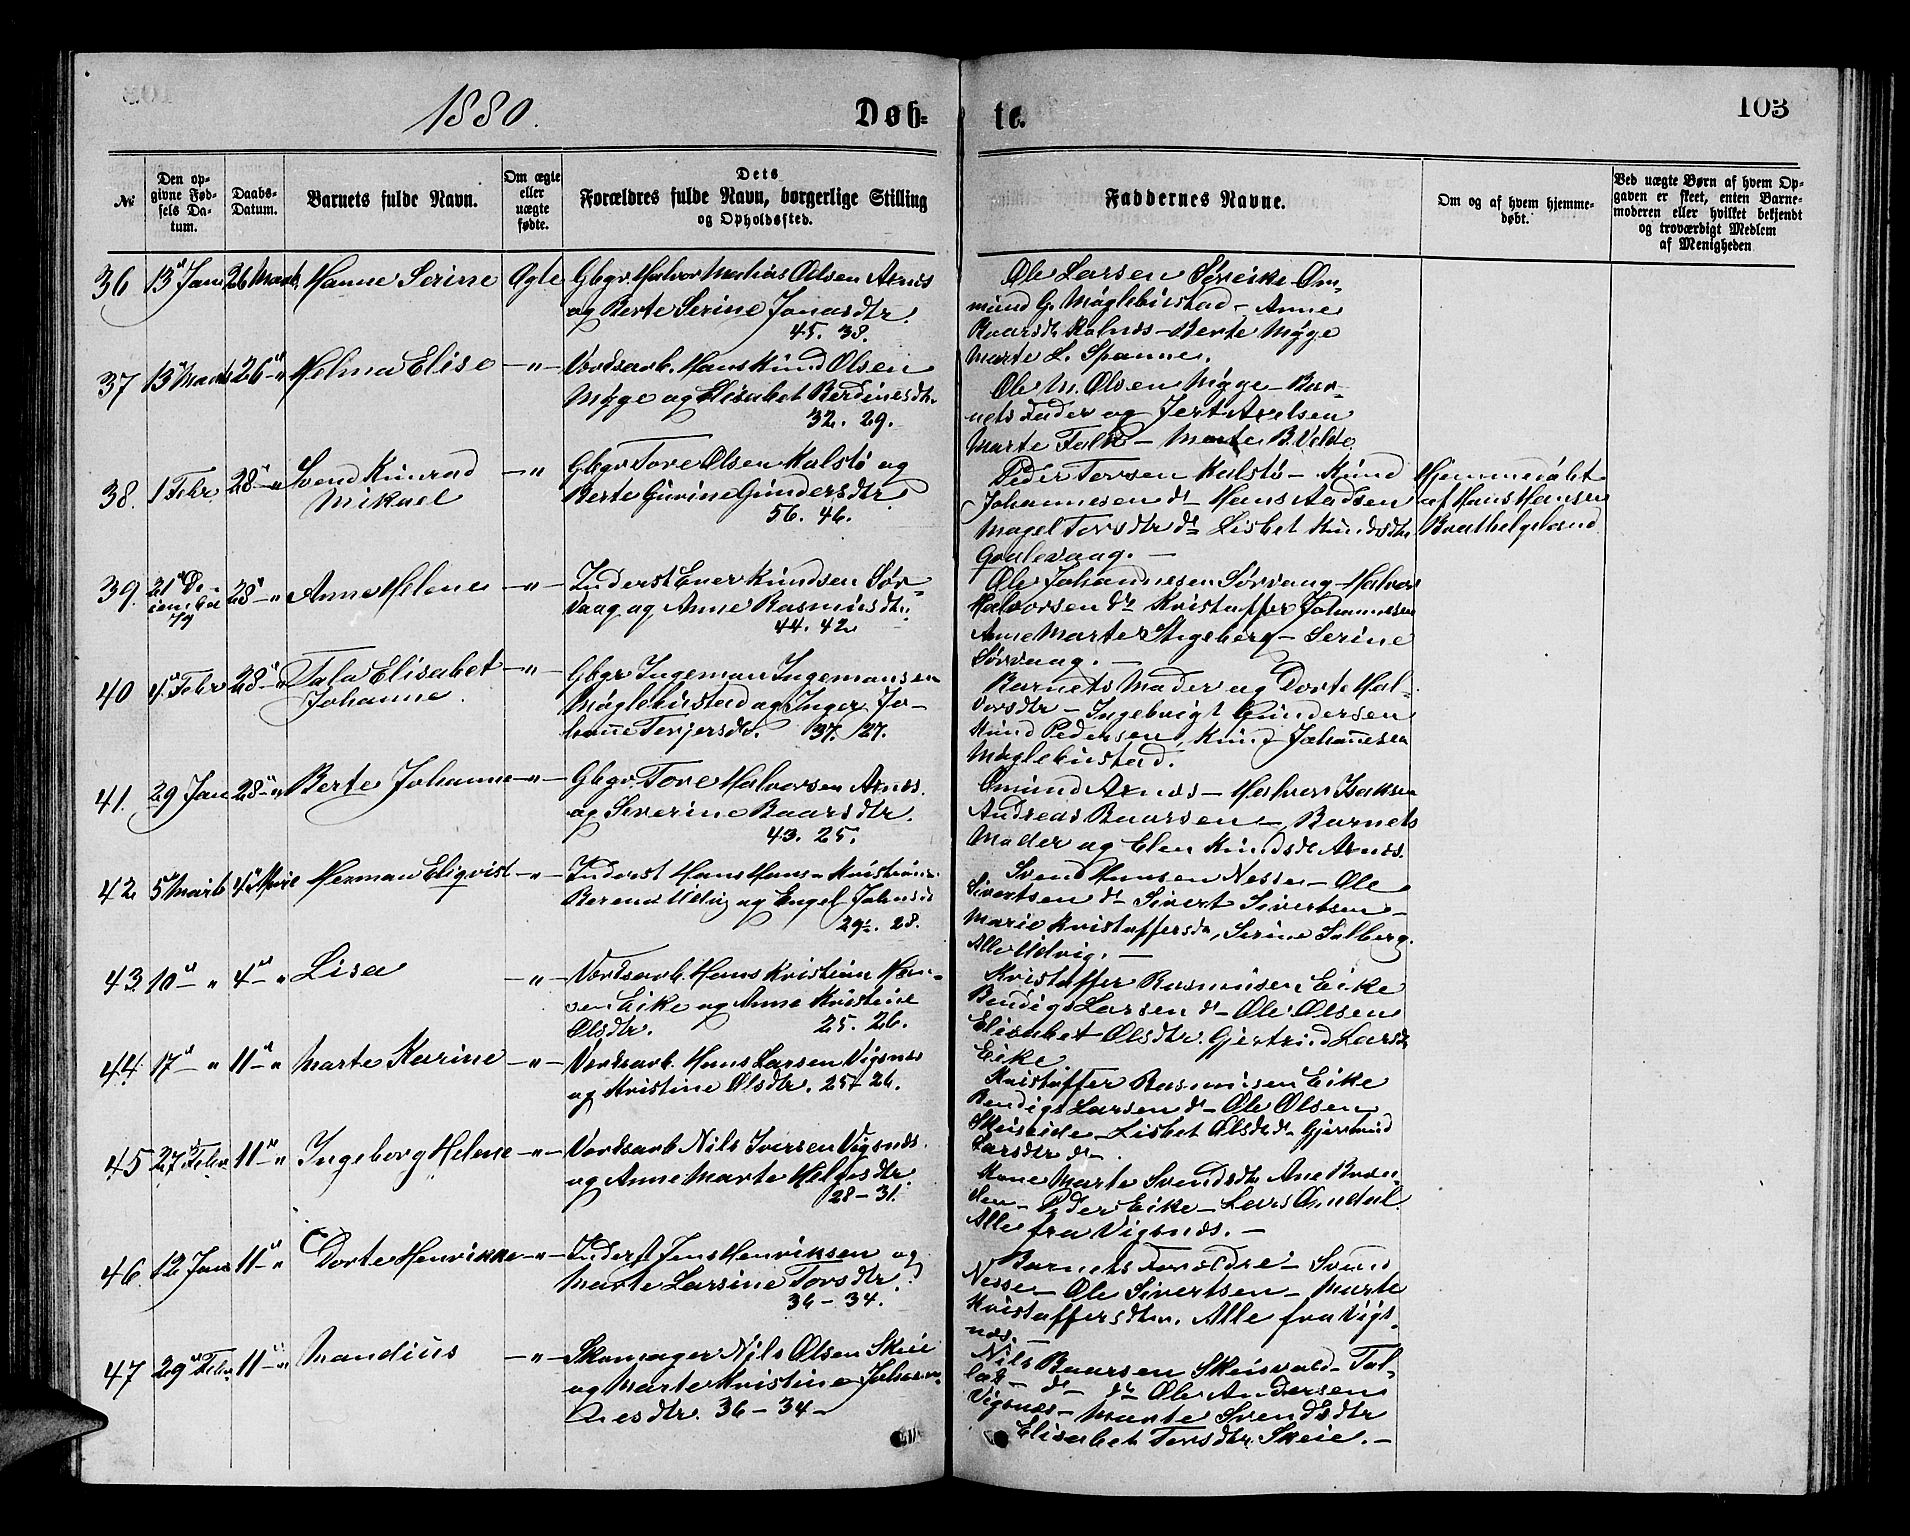 103
1880.
Døb-
te.
No
Den op-
givne Fød-
sels Da-
tum.
Daabs-
Datum.
Barnets fulde Navn.
Om ægte
eller
uægte
fødte.
Dets
Forældres fulde Navn, borgerlige Stilling
og Opholdssted.
Faddernes Navne.
Om og af hvem hjemme-
døbt.
Ved uægte Børn af hvem Op-
gaven er skeet, enten Barne-
moderen eller hvilket bekjendt
og troværdigt Medlem
af Menigheden
36 13 Jan 26 Marts Hanne Serine Ægte Gbgr. Halvor Matias Olsen Arnes
og Berte Serine Jonasdtr.
45. 38.
Ole Larsen Søreike Om-
mund G. Møglebustad - Anne
Baarsdt. Kolnes - Berte Myge
Marte L. Spanne.
37 13 Marts 26 - " Helma Elise - " - Værdsarb. Hans Knud Olsen
Myge og Elisabet Berdinesdtr.
32. 29.
Ole M. Olsen Myge - Bar-
nets Fader og Jert Axelsen
Marte Falk - Marte B. Velde
38. 1 Febr 28 - " Svend Kunrad
Mikael
- " Gbgr Tore Olsen Kalstø og
Berte Gurine Gundersdtr.
56. 46.
Peder Torsen Kalstø - Knud
Johannesen do Hans Aadsen
Magel Torsdtr do Lisbet Knudsdtr.
Gaalevaag. -
Hjemmedøbt
af Hans Hansen
Bratthelgeland
39. 21 De-
cember
79
28 - " Anne Helene - " - Inderst Ener Knudsen Sør-
vaag og Anne Rasmusdtr.
44. 42
Ole Johannesen Sørvaag - Halvor
Halvorsen do Kristaffer Johannesen
Anne Marte Stegeberg - Serine
Sørvaag. -
40 4 Febr 28 - " Tala Elisabet
Johanne.
- " - Gbgr Ingeman Ingemansen
Møglebustad og Inger Jo-
hanne Terjersdtr. 37. 27.
Barnets Moder og Dorte Hal-
vorsdtr - Ingebrigt Gundersen
Knud Pedersen, Knud Johannesen
Møglebustad.
41. 29 Jan 28 - " Berte Johanne - " - Gbgr. Tore Halvorsen Arnes.
og Severine Baarsdtr.
43. 25.
Omund Arnes - Halvor Isaksen
Andreas Baarsen - Barnets
Moder og Elen Knudsdt Arnes.
42 5 Marts 4 April Herman Eliqvist - " - Inderst Hans Hans- Kristians-
Berend Udvig og Engel Johnsd
29½. 28.
Svend Hansen Nesse - Ole
Sivertsen do Sivert Sivertsen -
Marie Kristaffersdr, Serine Salberg.
Alle Udvig. -
43. 10 - " 4 - " Lisa - " - Værdsarb. Hans Kristian Han-
sen Eike og Anne Kristine
Olsdtr. 25. 26.
Kristaffer Rasmusen Eike
Bendigt Larsen do - Ole Olsen
Elisabet Olsdtr. Gjertrud Larsdr
Eike
44. 17 - " 11 - " Marte Karine - " - Værdsarb. Hans Larsen Vigsnes
og Kristine Olsdtr. 25 - 26.
Kristaffer Rasmusen Eike
Bendigt Larsen do - Ole Olsen
Skeiseide - Lisbet Olsdtr do - Gjertrud
Larsdtr do -
45 27 Febr. 11 - " Ingeborg Helene - " - Værdsarb Nils Iversen Vigsnes.
og Anne Marte Helgesdtr.
28 - 31.
Kone Marte Svendsdtr Ane
- Peder Eike - Lars Omdal.
Alle fra Vigsnes. -
46. 12 Jan 11 - " Dorte Henrikke - " - Inderst Jens Henriksen og
Marte Larsine Torsdtr.
36 - 34.
Barnets Forældre - Svend
Nesse - Ole Sivertsen - Marte
Kristaffersdtr. Alle fra Vigs-
nes. -
47 29 Febr. 11 - " Mandius - " - Skomager Nils Olsen Skeie
og Marte Kristine Johan-
nesdtr. 36 - 34 -
Nils Baarsen Skeisvold - Tal-
lag - do - do Ole Andersen
Vigsnes - Marte Svendsdtr
Elisabet Torsdtr. Skeie. -